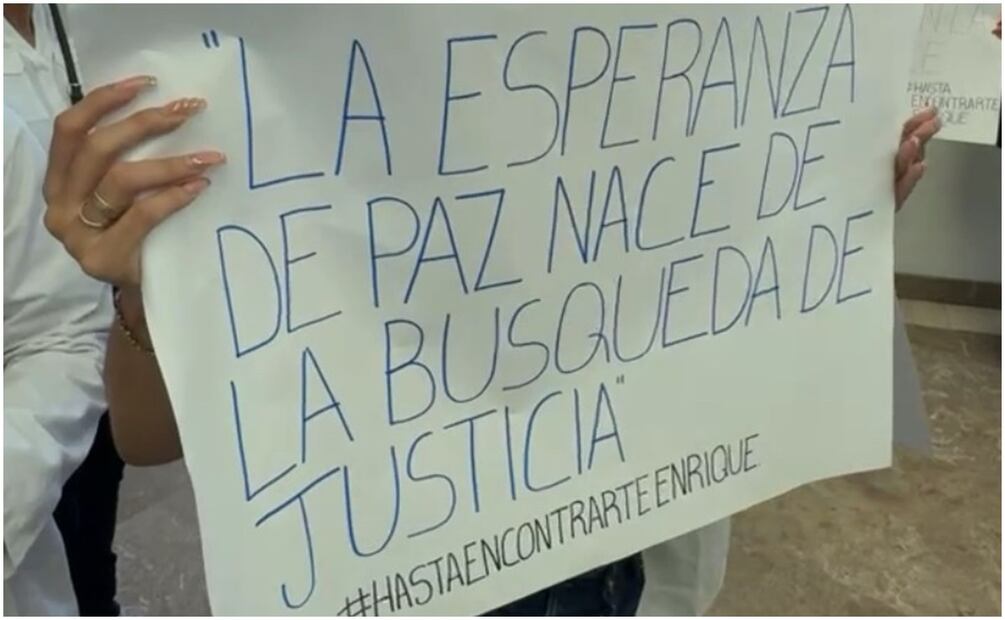 "LA ESPERANZA
DE PAZ NACE DE
LA BUSQUEDA DE
JUSTICIA"
#HASTAENCONTRARTE ENRIQUE.
N LA
E
#HASTA
ENCONTRARTE